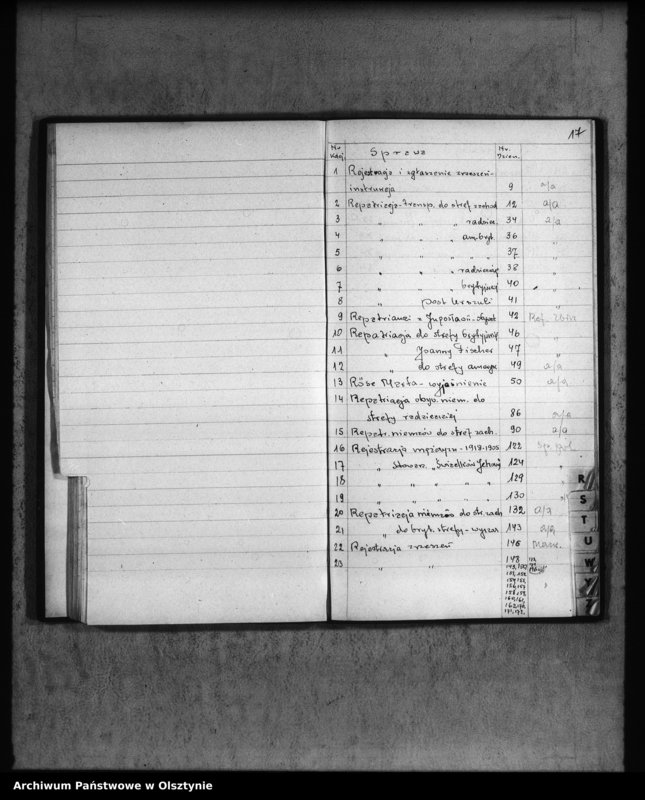 17
Nr. kol. Sprawa Nr. Dzien.
1 Rejestracja i zgłaszenie zrzeszeń-
instrukcja 9 a/a
2 Repatriacja-transp. do stref zachod 12 a/a
3 " " " radziec. 34 a/a
4 " " " am.bryt. 36 "
5 " " " " " 37 "
6 " " " radzieckiej 38 "
7 " " " brytyjskiej 40 "
8 " Post Urszuli 41 "
9 Repatrianci z Jugosławi 42
10 Repatriacja do strefy brytyjskiej 46 "
11 " Joanny Fischer 47 "
12 " do strefy ameryk. 49 a/a
13 Röse Marta - wyjaśnienie 50 a/a
14 Repatriacja obyw. niem. do
strefy radzieckiej 86 a/a
15 Repatr. niemców do stref zach. 90 a/a
16 Rejestracja mężczyzn-1918-1905 122
17 " Stowarz. „Świadków Jehowy" 124 "
18 " " " " " 129 "
19 " " " " " 130
20 Repatriacja niemców do str. zach 132 a/a
21 " do bryt. strefy - wyjazd 143 a/a
22 Rejestracja zrzeszeń 146
23 " " 148
R
S
T
U
W
Z
Archiwum Państwowe w Olsztynie